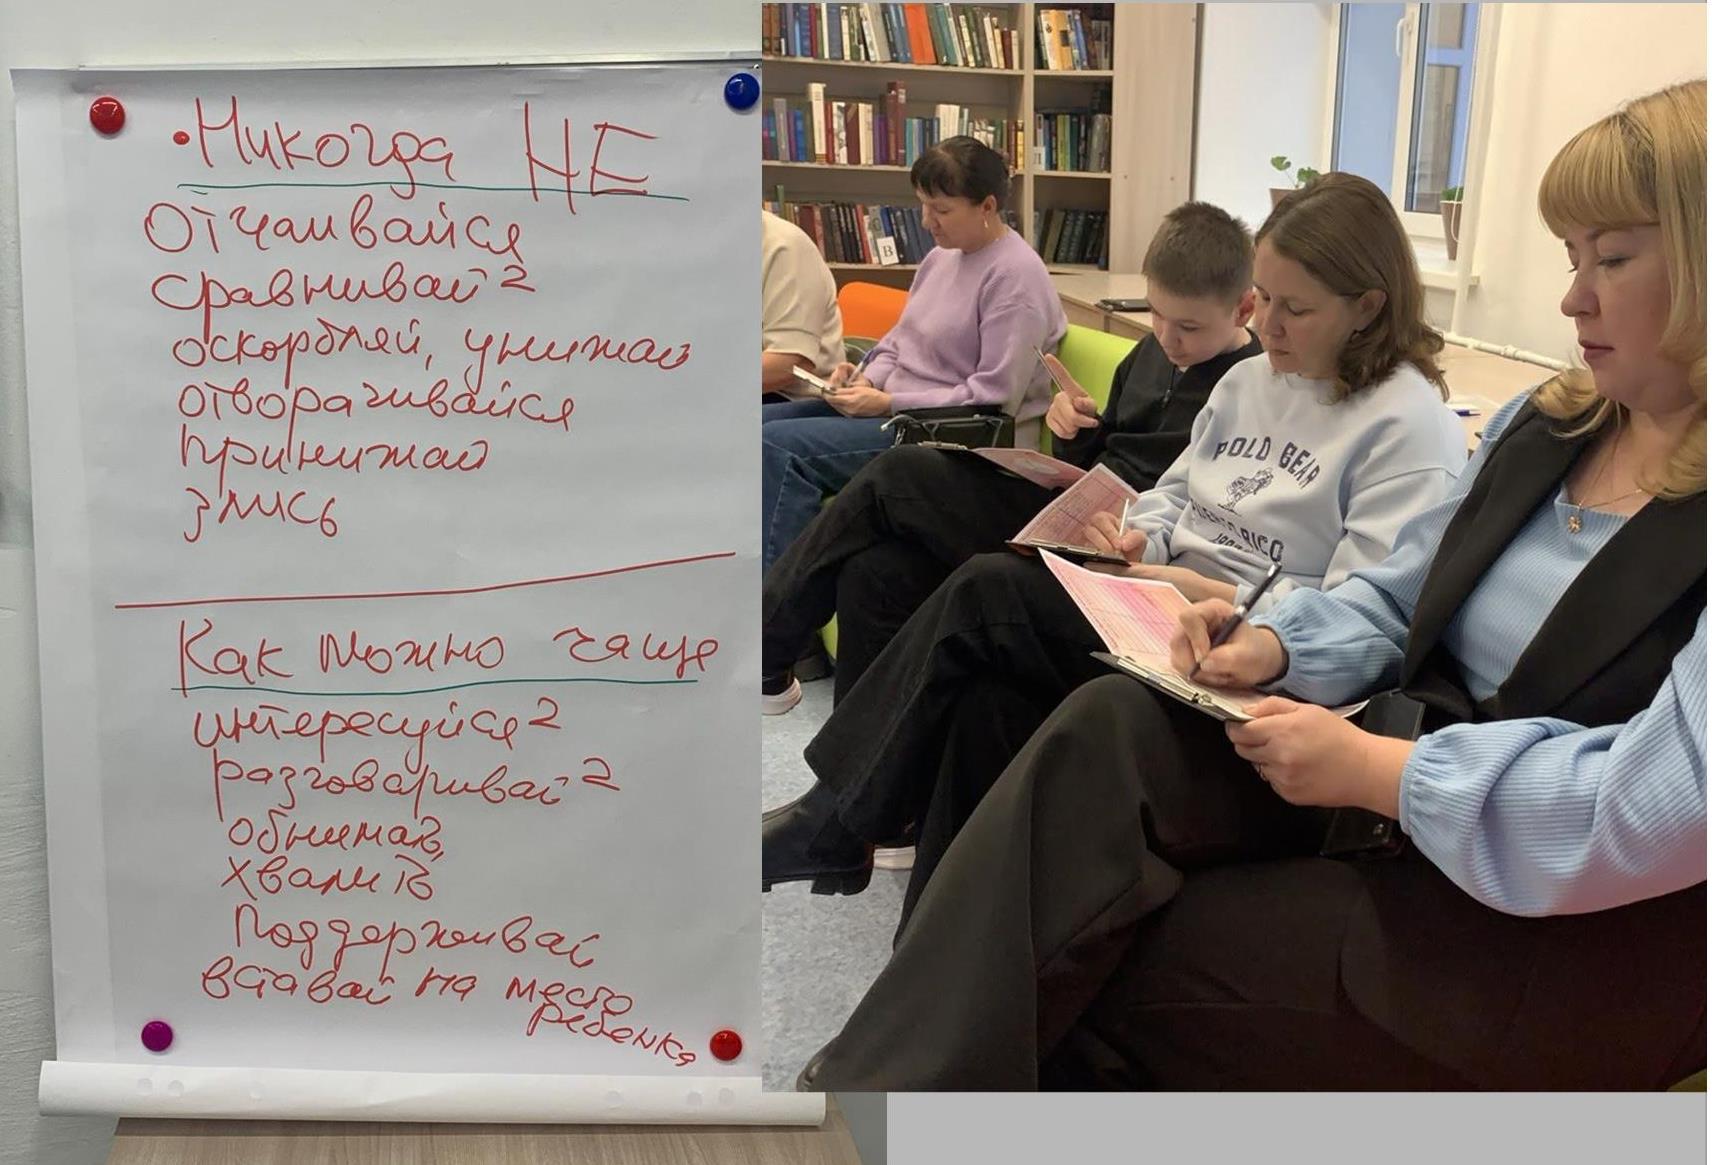 • Никогда НЕ
отчаивайся
сравнивай 2
оскорбляй, унижай
отворачивайся
принижай
злись
Как можно чаще
интересуйся 2
разговаривай 2
обнимай,
хвали
Поддерживай
вставай на место
ребенка
В
POLO BEAR
PUERTO RICO